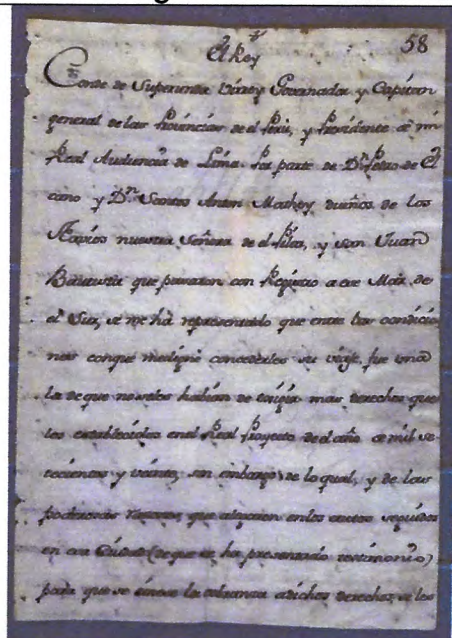 58
El Rey
Conde de Superunda Virrey Governador y Capitan
general de las Provincias de el Perú, y Presidente de mi
Real Audiencia de Lima. Por parte de Dn. Pedro de El
cano y Dn. Santos Anton Matheu dueños de los
Navios nuestra Señora de el Pilar, y San Juan
Bautista que pasaron con Registro a ese Mar de
el Sur, se me ha representado que entre las condicio
nes conque me digné concederles su viaje, fue una
la de que no se les habían de exigir mas derechos que
los establecidos en el Real Proyecto de el año de mil se
tecientos y veinte, sin embargo de lo qual, y de las
poderosas razones que alegaron en los autos seguidos
en esa Ciudad (de que se ha presentado testimonio)
para que se la cobranza dichos derechos, se les